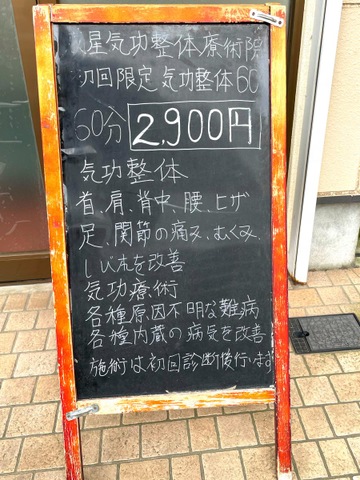 星気功整体療術院
初回限定 気功整体60
60分 2,900円
気功整体
首、肩、背中、腰、ヒザ
足、関節の痛み、むくみ、
しびれを改善
気功療術
各種原因不明な難病
各種内蔵の病気を改善
施術は初回診断後行います